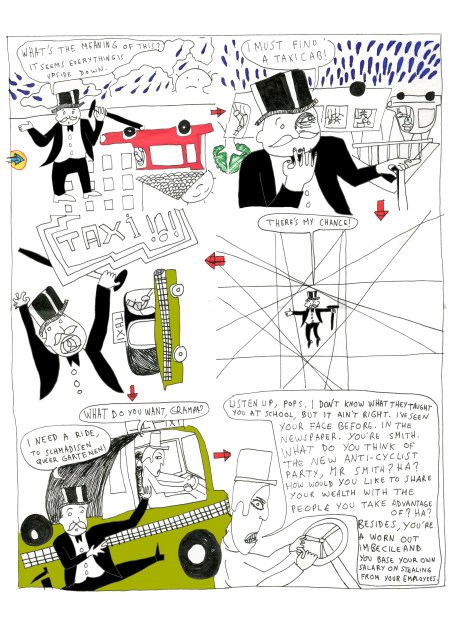 WHAT'S THE MEANING OF THIS?
IT SEEMS EVERYTHING IS
UPSIDE DOWN.
I MUST FIND
A TAXICAB!
THERE'S MY CHANCE!
TAXI!!!
TAXI
WHAT DO YOU WANT, GRAMPA?
TAXI
I NEED A RIDE,
TO SCHMADISEN
QUEER GARTENEN!
LISTEN UP, POPS. I DON'T KNOW WHAT THEY TAUGHT
YOU AT SCHOOL, BUT IT AIN'T RIGHT. I'VE SEEN
YOUR FACE BEFORE. IN THE
NEWSPAPER. YOU'RE SMITH.
WHAT DO YOU THINK OF
THE NEW ANTI-CYCLIST
PARTY, MR SMITH? HA?
HOW WOULD YOU LIKE TO SHARE
YOUR WEALTH WITH THE
PEOPLE YOU TAKE ADVANTAGE
OF? HA?
BESIDES, YOU'RE
A WORN OUT
IMBECILE AND
YOU BASE YOUR OWN
SALARY ON STEALING
FROM YOUR EMPLOYEES.